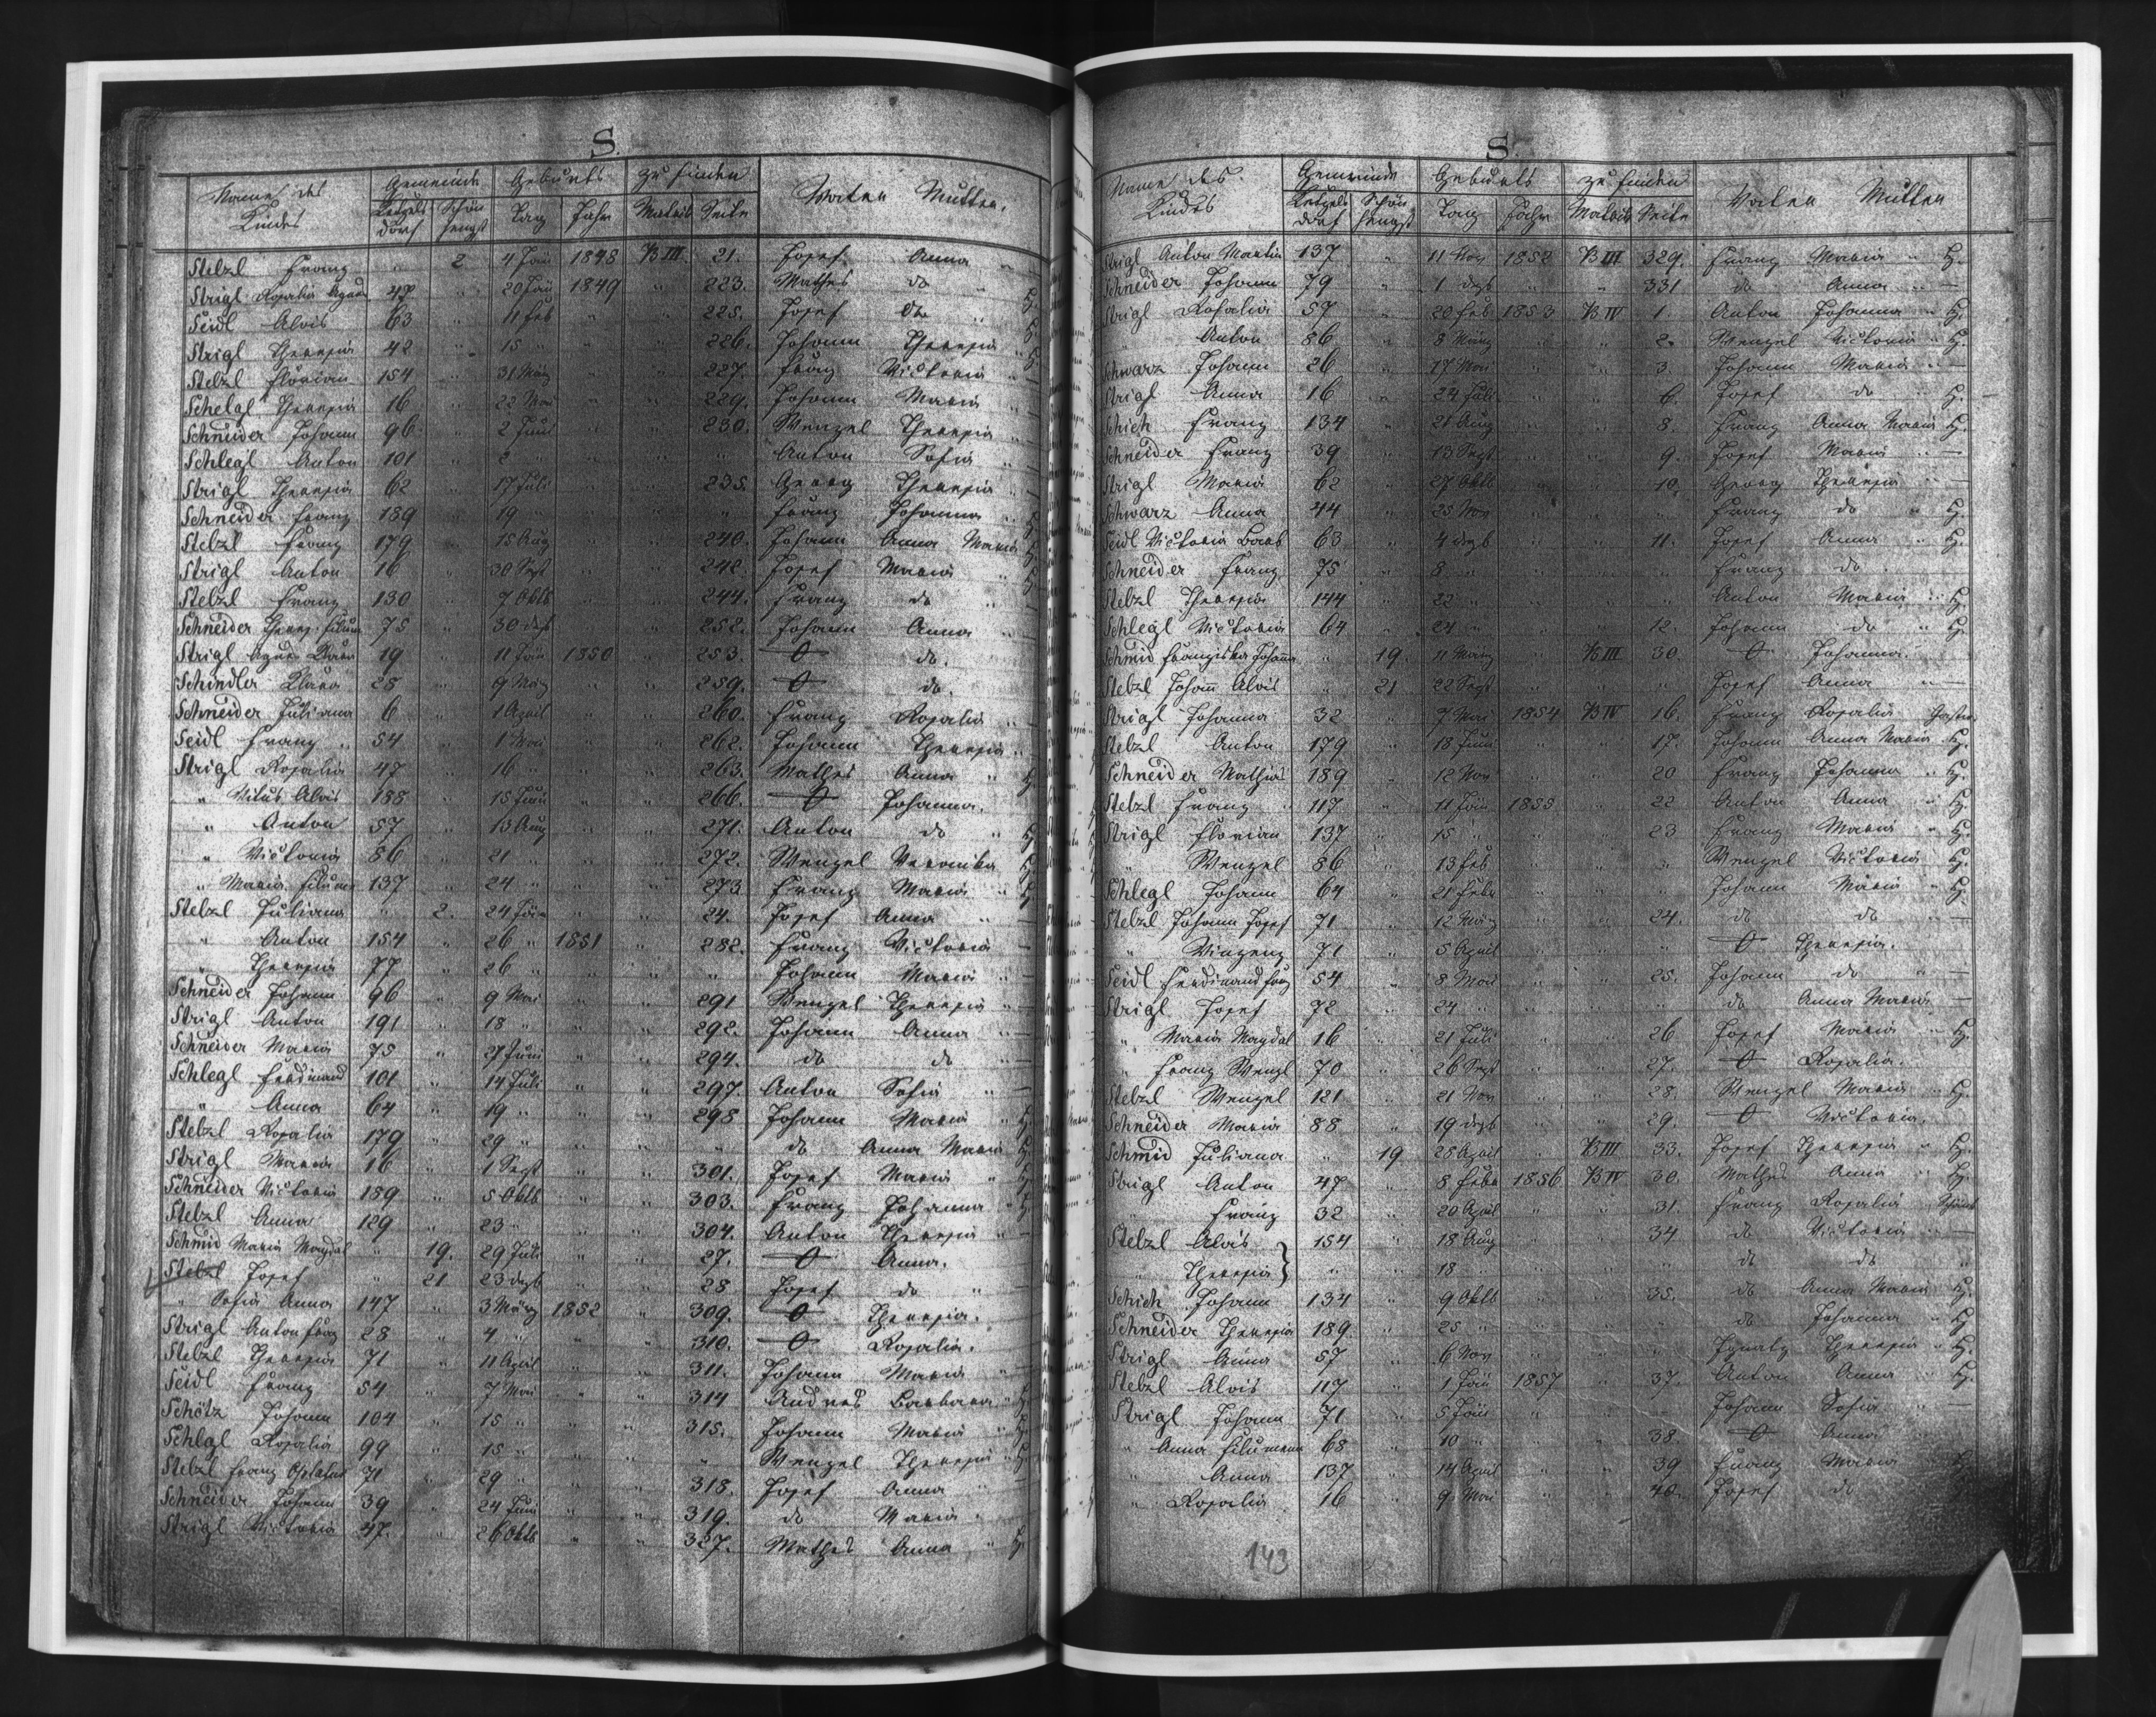 S.
Name des Kindes Gemeinde Geburts zu finden Vater Mutter.
Ketzels dorf Schön hengst Tag Jahr Matrik Seite
Stelzl Franz " 2 4 Jän 1848 B III 21. Josef Anna " —
Strigl Rosalia 47 " 20 Jän 1849 " 223. Mathes do " H.
Seidl Alois 63 " 11 Feb " " 225. Josef do "
Strigl Theresia 42 " 15 " " " 226. Johann Theresia " H.
Stelzl Florian 154 " 31 März " " 227. Franz Victoria " —
Theresia 16 " 22 Mai " " 229. Johann Maria " —
Schneider Johann 96 " 2 Juni " " 230. Wenzel Theresia " —
Schlegl Anton 101 " 2 " " " " Anton Sofia " —
Strigl Theresia 62 " 17 Juli " " 235. Georg Theresia " —
Schneider Franz 189 " 19 " " " " Franz Johanna " H.
Stelzl Franz 179 " 15 Aug " " 240. Johann Anna Maria H.
Strigl Anton 16 " 30 Sept " " 242. Josef Maria " H.
Stelzl Franz 130 " 7 Oktb " " 244. Franz do " —
Schneider Theres. Filum 75 " 30 dezb " " 252. Johann Anna " —
Strigl 19 " 11 Jän 1850 " 253. O do.
Schindler Klara 28 " 9 März " " 259. O do.
Schneider Juliana 6 " 1 April " " 260. Franz Rosalia " —
Seidl Franz " 54 " 1 Mai " " 262. Johann Theresia " —
Strigl Rosalia 47 " 16 " " " 263. Mathes Anna " H.
" Vitus Alois 188 " 15 Juni " " 266. O Johanna.
" Anton 57 " 13 Aug " " 271. Anton do " H.
" Victoria 86 " 21 " " " 272. Wenzel Veronika H.
" Maria Filumen 137 " 24 " " " 273 Franz Maria " H.
Stelzl Juliana " 2. 24 Jän " " 24. Josef Anna " —
" Anton 154 " 26 " 1851 " 282. Franz Victoria —
" Theresia 77 " 26 " " " " Johann Maria " —
Schneider Johann 96 " 9 Mai " " 291 Wenzel Theresia " —
Strigl Anton 191 " 18 " " " 292. Johann Anna " —
Schneider Maria 75 " 27 Juni " " 294. do do " —
Schlegl Ferdinand 101 " 14 Juli " " 297. Anton Sofia " —
" Anna 64 " 19 " " " 298 Johann Maria " H.
Stelzl Rosalia 179 " 29 " " " " do Anna Maria H.
Strigl Maria 16 " 1 Sept " " 301. Josef Maria " H.
Schneider Victoria 189 " 5 Oktb " " 303. Franz Johanna " H.
Stelzl Anna 129 " 23 " " " 304. Anton Theresia " —
Schmid Maria Magdal " 19. 29 Juli " " 27. O Anna.
Stelzl Josef " 21 23 dezb " " 28 Josef do "
" Sofia Anna 147 " 3 März 1852 " 309. O Theresia.
Strigl Anton Franz 28 " 4 " " " 310. O Rosalia.
Stelzl Theresia 71 " 11 April " " 311. Johann Maria " —
Seidl Franz 54 " 7 Mai " " 314 Andres Barbara " H.
Schötz Johann 104 " 15 " " " 315. Johann Maria " H.
Schlgl Rosalia 99 " 15 " " " " Wenzel Theresia " H.
Stelzl Franz 71 " 29 " " " 318. Josef Anna " —
Schneider Johann 39 " 24 Juni " " 319. do Maria "
Strigl Victoria 47. " 26 Oktb " " 327. Mathes Anna " H.
S.
Name des Kindes Gemeinde Geburts zu finden Vater Mutter
Ketzels dorf Schön hengst Tag Jahr Matrik Seite
Strigl Anton Martin 137 " 11 Nov 1852 B III 329. Franz Maria " H.
Schneider Johann 79 " 1 dezb " " 331 do Anna " —
Strigl Rosalia 57 " 20 Feb 1853 B IV 1. Anton Johanna " H.
" Anton 86 " 8 März " " 2. Wenzel Victoria " H.
Schwarz Johann 26 " 17 Mai " " 3. Johann Maria " —
Strigl Anna 16 " 24 Juli " " 6. Josef do " H.
Schich Franz 134 " 21 Aug " " 8. Franz Anna Maria H.
Schneider Franz 39 " 13 Sept " " 9. Josef Maria " —
Strigl Maria 62 " 27 Oktb " " 10. Georg Theresia " —
Schwarz Anna 44 " 25 Nov " " " Franz do " H.
Seidl Victoria Barb 63 " 4 dezb " " 11. Josef Anna " H.
Schneider Franz 75 " 8 " " " " Franz do "
Stelzl Theresia 144 " 22 " " " " Anton Maria " H.
Schlegl Victoria 64 " 24 " " " 12. Johann do " H.
Schmid Franziska Johanna " 19. 11 März " B III 30. O Johanna.
Stelzl Johann Alois " 21 22 Sept " " " Josef Anna " —
Strigl Johanna 32 " 7 Mai 1854 B IV 16. Franz Rosalia
Stelzl Anton 179 " 18 Juni " " 17. Johann Anna Maria H.
Schneider Mathias 189 " 12 Nov " " 20 Franz Johanna " H.
Stelzl Franz " 117 " 11 Jän 1855 " 22 Anton Anna " H.
Strigl Florian 137 " 15 " " " 23 Franz Maria " H.
" Wenzel 86 " 13 Feb " " " Wenzel Victoria H.
Schlegl Johann 64 " 21 Febr " " " Johann Maria " H.
Stelzl Johann Josef 71 " 12 März " " 24. do do " —
" Vinzenz 71 " 5 April " " " O Theresia.
Seidl Ferdinand Franz 54 " 8 Mai " " 25. Johann do " —
Strigl Josef 72 " 24 " " " " do Anna Maria —
" Maria Magdal 16 " 21 Juli " " 26 Josef Maria " H.
" Franz Wenzl 70 " 26 Sept " " 27. O Rosalia.
Stelzl Wenzel 121 " 21 Nov " " 28. Wenzel Maria " H.
Schneider Maria 88 " 19 dezb " " 29. O Victoria.
Schmid Juliana " 19 28 April " B III 33. Josef Theresia " H.
Strigl Anton 47 " 8 Febr 1856 B IV 30. Mathes Anna " H.
" Franz 32 " 20 April " " 31. Franz Rosalia
Stelzl Alois } 154 " 18 Aug " " 34 do Victoria " —
" Theresia } " " 18 " " " " do do "
Schich Johann 134 " 9 Oktb " " 35. do Anna Maria H.
Schneider Theresia 189 " 25 " " " " do Johanna " H.
Strigl Anna 57 " 6 Nov " " " Ignatz Theresia " H.
Stelzl Alois 117 " 1 Jän 1857 " 37. Anton Anna " H.
Strigl Johann 71 " 5 Jän " " " Johann Sofia " —
" Anna Filumena 68 " 10 " " " 38. O Anna
" Anna 137 " 14 April " " 39 Franz Maria
" Rosalia 16 " 9 Mai " " 40. Josef do
143